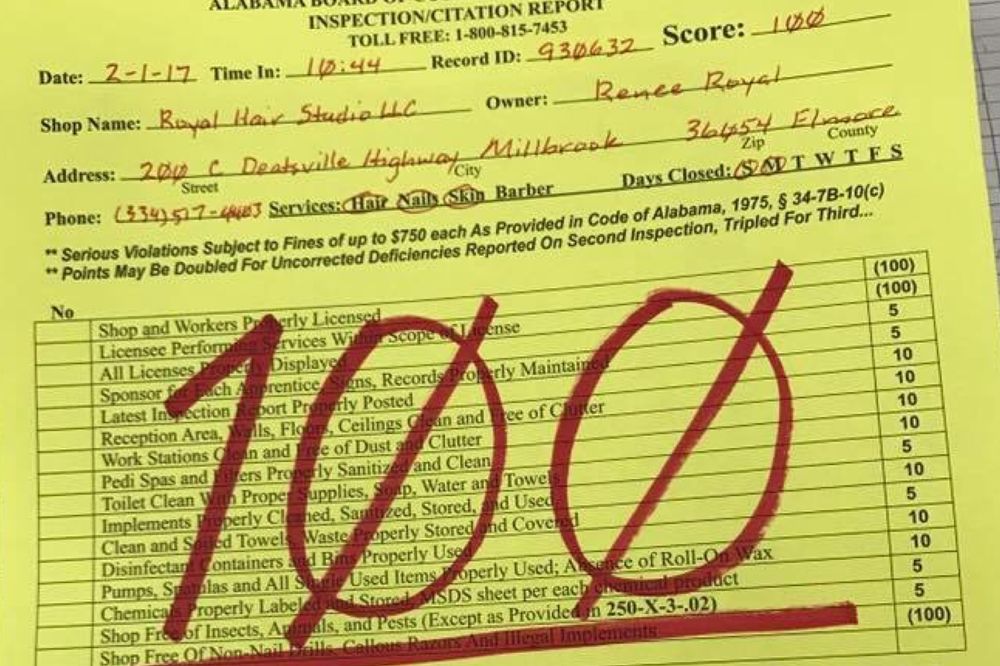 ALABAMA BOARD OF
INSPECTION/CITATION REPORT
TOLL FREE: 1-800-815-7453
Score: 100
Date: 2-1-17 Time In: 10:44 Record ID: 930632
Shop Name: Royal Hair Studio LLC Owner: Renee Royal
Address: 200 C Deatsville Highway Millbrook 36054 Elmore
Street City Zip County
Phone: (334)517- Services: Hair Nails Skin Barber Days Closed: S M T W T F S
** Serious Violations Subject to Fines of up to $750 each As Provided in Code of Alabama, 1975, § 34-7B-10(c)
** Points May Be Doubled For Uncorrected Deficiencies Reported On Second Inspection, Tripled For Third...
No
Shop and Workers Properly Licensed (100)
Licensee Performing Services Within Scope of License (100)
All Licenses Properly Displayed 5
Sponsor for Each Apprentice, Signs, Records Properly Maintained 5
Latest Inspection Report Properly Posted 10
Reception Area, Walls, Floors, Ceilings Clean and Free of Clutter 10
Work Stations Clean and Free of Dust and Clutter 10
Pedi Spas and Filters Properly Sanitized and Clean 10
Toilet Clean With Proper Supplies, Soap, Water and Towels 5
Implements Properly Cleaned, Sanitized, Stored, and Used 10
Clean and Soiled Towels, Waste Properly Stored and Covered 5
Disinfectant Containers and Bins Properly Used 10
Pumps, Spatulas and All Single Used Items Properly Used; Absence of Roll-On Wax 10
Chemicals Properly Labeled and Stored, MSDS sheet per each chemical product 5
Shop Free of Insects, Animals, and Pests (Except as Provided in 250-X-3-.02) 5
Shop Free Of Non-Nail Drills, Callous Razors And Illegal Implements (100)
100